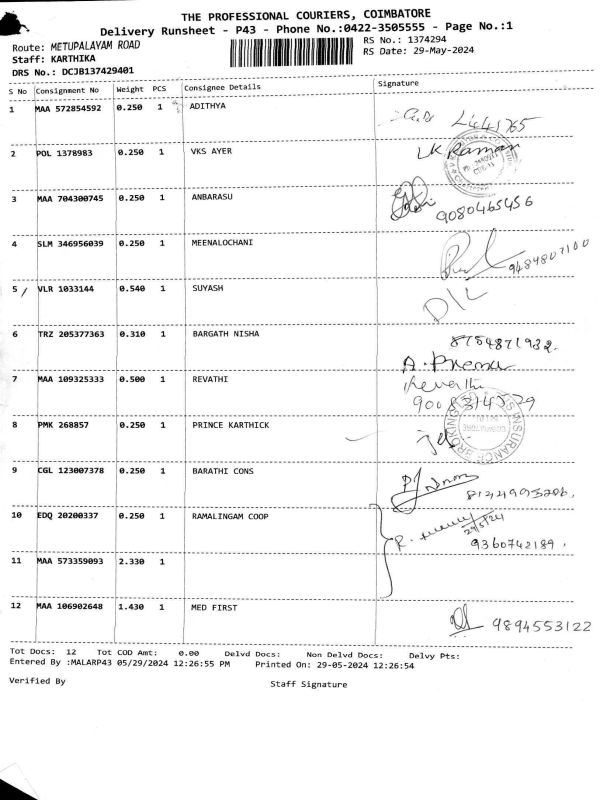 THE PROFESSIONAL COURIERS, COIMBATORE
Delivery Runsheet - P43 - Phone No.:0422-3505555 - Page No.:1
Route: METUPALAYAM ROAD
RS No.: 1374294
Staff: KARTHIKA
RS Date: 29-May-2024
DRS No.: DCJB137429401
S No Consignment No Weight PCS Consignee Details Signature
1 MAA 572854592 0.250 1 ADITHYA
2 POL 1378983 0.250 1 VKS AYER LK Raman
3 MAA 704300745 0.250 1 ANBARASU 9080465456
4 SLM 346956039 0.250 1 MEENALOCHANI
5 VLR 1033144 0.540 1 SUYASH D/L
6 TRZ 205377363 0.310 1 BARGATH NISHA 8754871932.
A. Prema
7 MAA 109325333 0.500 1 REVATHI Revathi
8 PMK 268857 0.250 1 PRINCE KARTHICK
9 CGL 123007378 0.250 1 BARATHI CONS
10 EDQ 20200337 0.250 1 RAMALINGAM COOP 29/5/24
9360742189.
11 MAA 573359093 2.330 1
12 MAA 106902648 1.430 1 MED FIRST 9894553122
Tot Docs: 12 Tot COD Amt: 0.00 Delvd Docs: Non Delvd Docs: Delvy Pts:
Entered By :MALARP43 05/29/2024 12:26:55 PM Printed On: 29-05-2024 12:26:54
Verified By Staff Signature